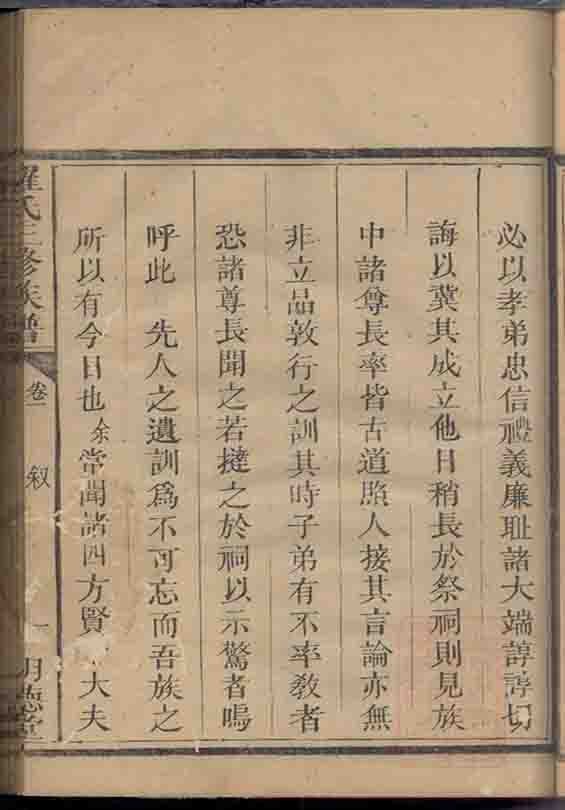 必以孝弟忠信禮義廉耻諸大端諄諄切
誨以冀其成立他日稍長於祭祠則見族
中諸尊長率皆古道照人接其言論亦無
非立品敦行之訓其時子弟有不率教者
恐諸尊長聞之若撻之於祠以示驚者嗚
呼此　先人之遺訓為不可忘而吾族之
所以有今日也余常聞諸四方賢　大夫
羅氏三修族譜
卷一
叙
一
明德堂